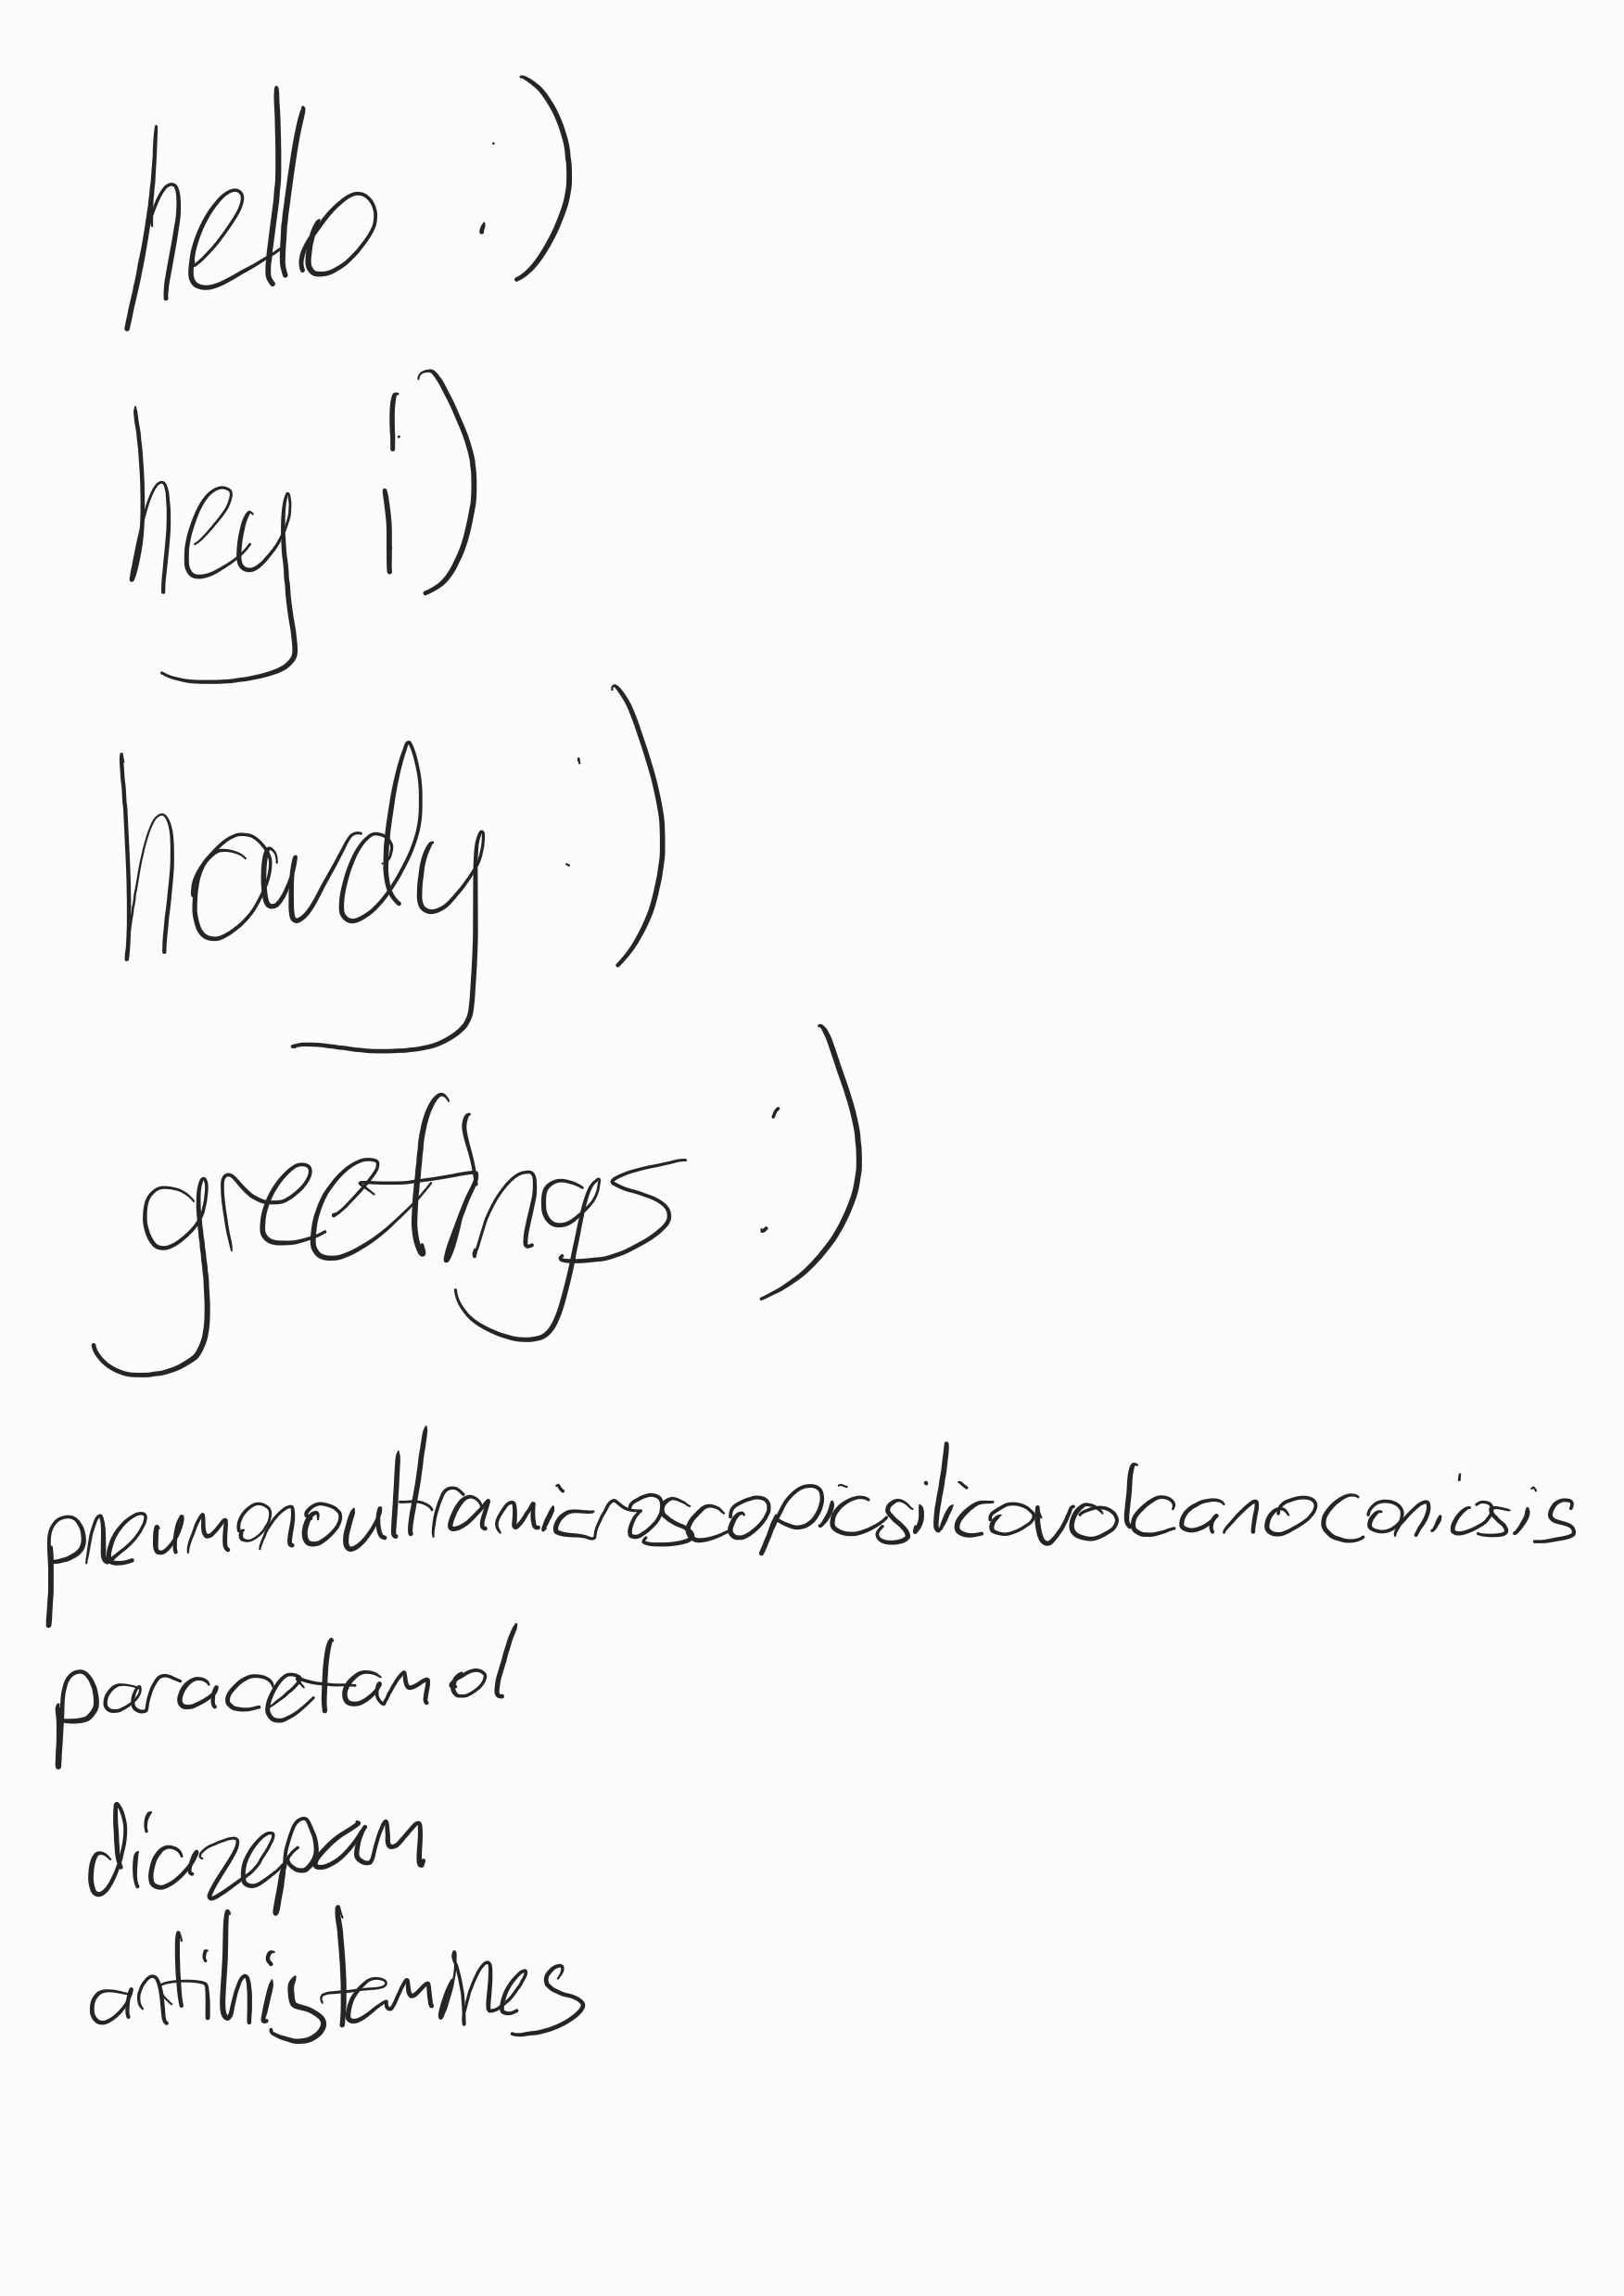 hello :)
hey :)
howdy :)
greetings :)
pneumonoultramicroscopicsilicovolcanoconiosis
paracetamol
diazepam